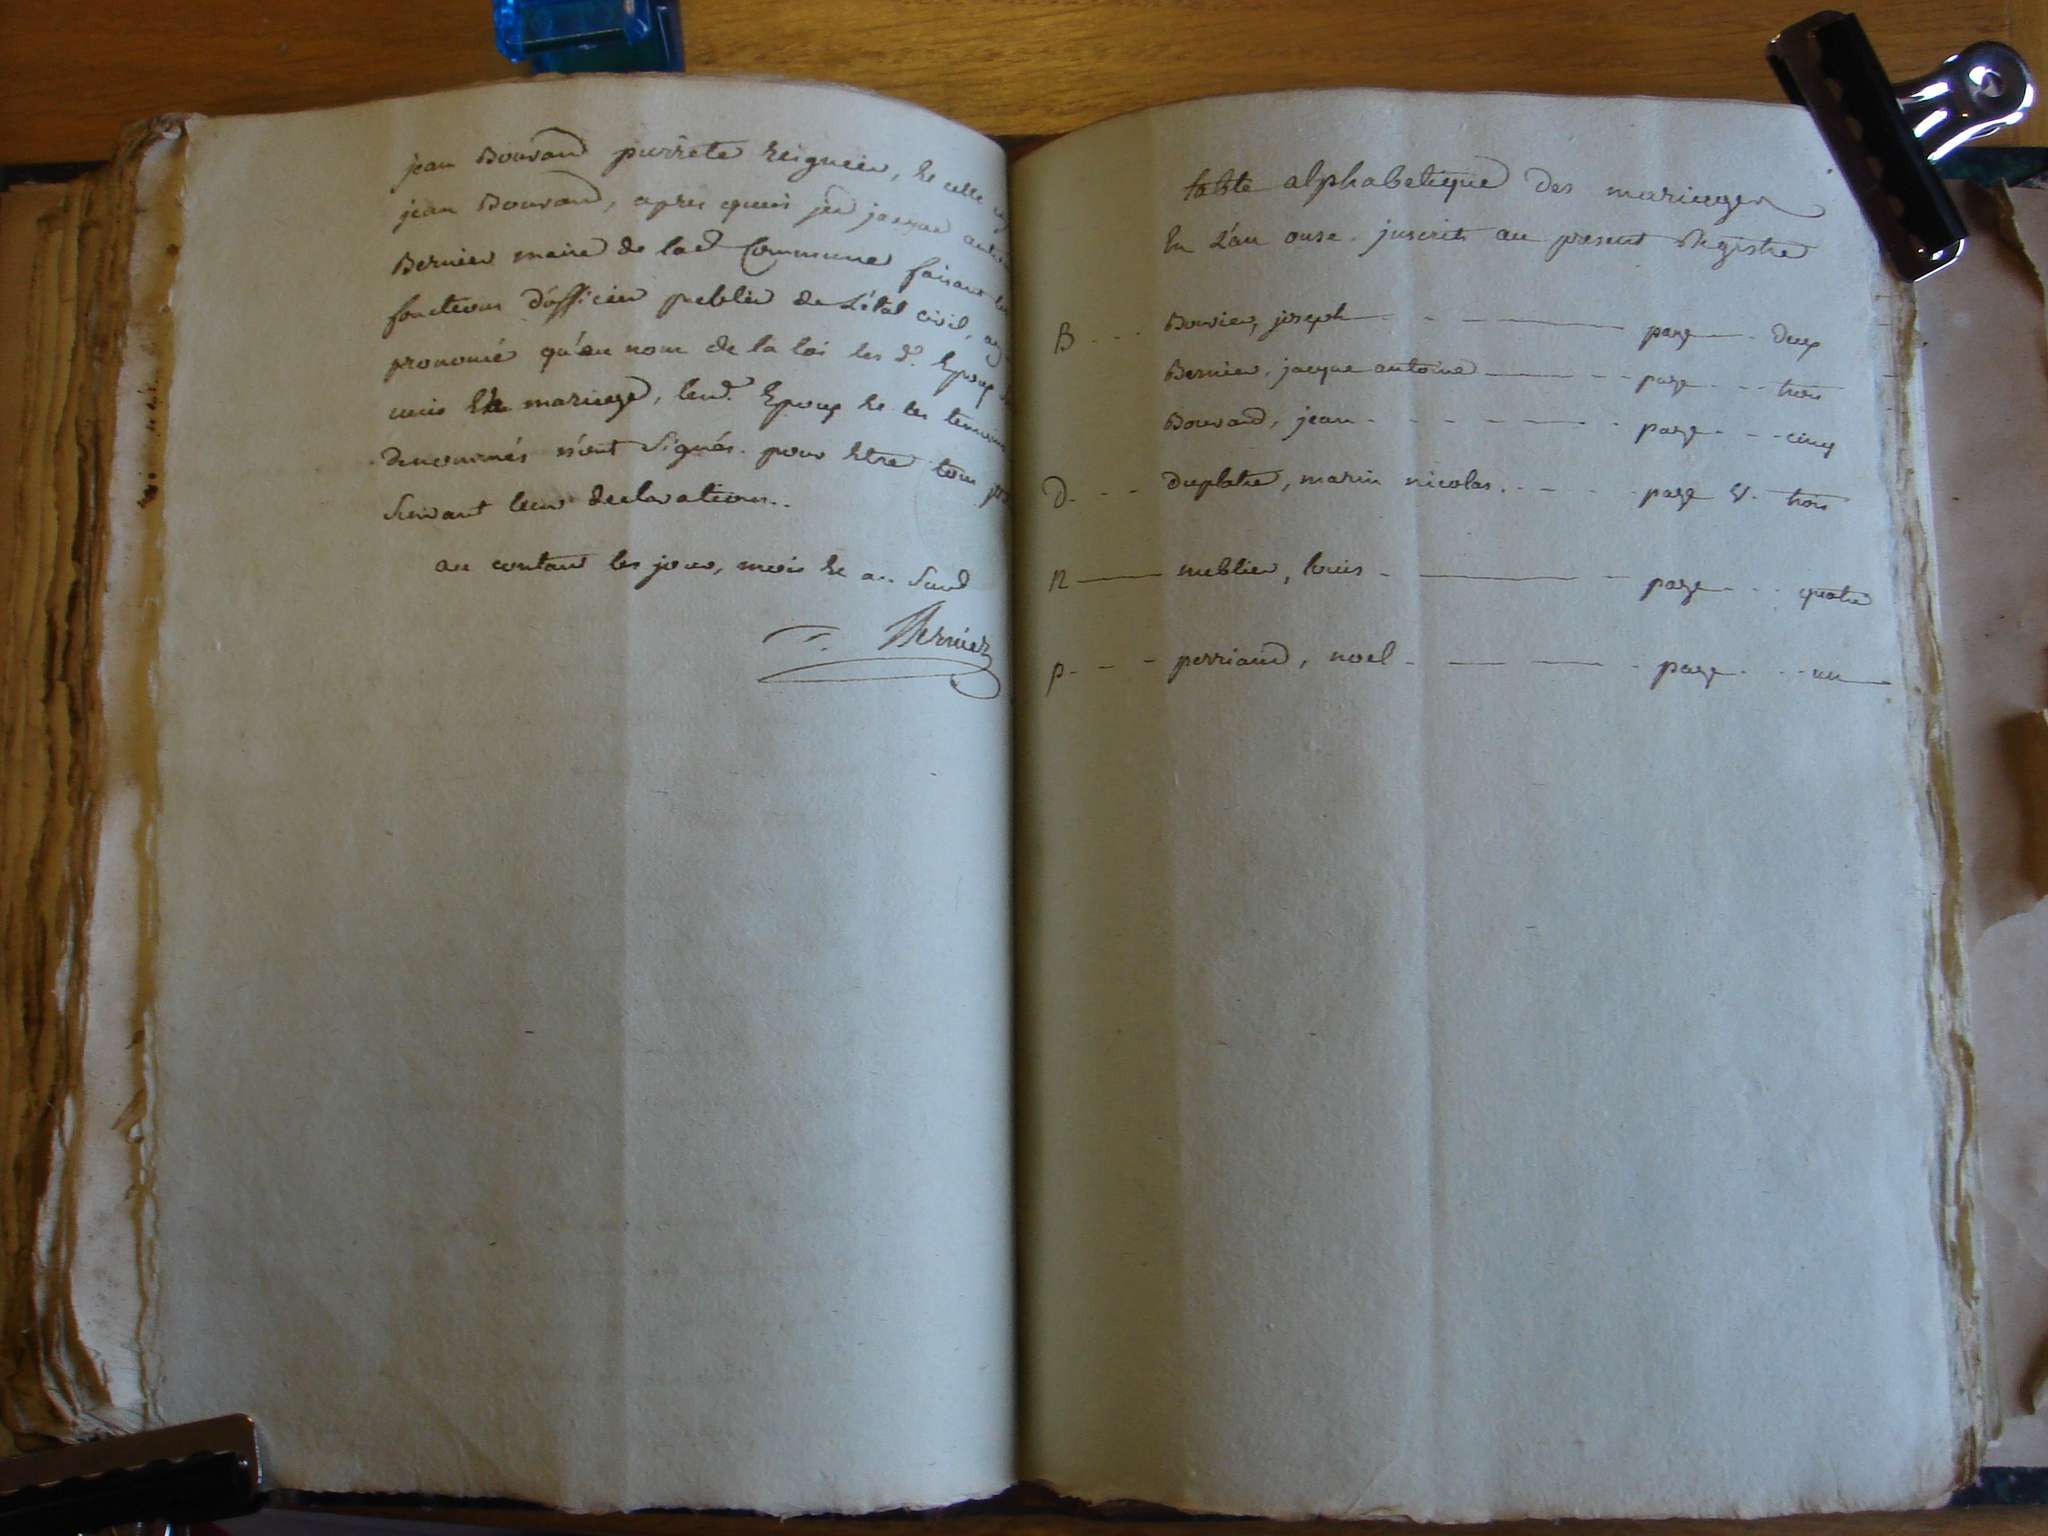 jean Bouvard pierrete reignier, Et celle
jean Bouvard, apres quoi je jacque
Bernier maire de lad Commune faisant les
fonctions d'officier public de L'état civil, ay
prononcé qu'au nom de la loi les d. Epoux
unis En mariage, leud. Epoux Et les temoins
denommés n'ont Signés. pour Etre tous
Suivant leur declaration..
au contant les jour, mois Et an Susd
Bernier
table alphabetique des mariages
En L'an onse. inscrits au present Registre
B Bouvier, joseph page deux
Bernier, jacque antoine page trois
Bouvard, jean page cinq
D duplatre, marin nicolas page trois
N neblier, louis page quatre
p perriand, noel page un